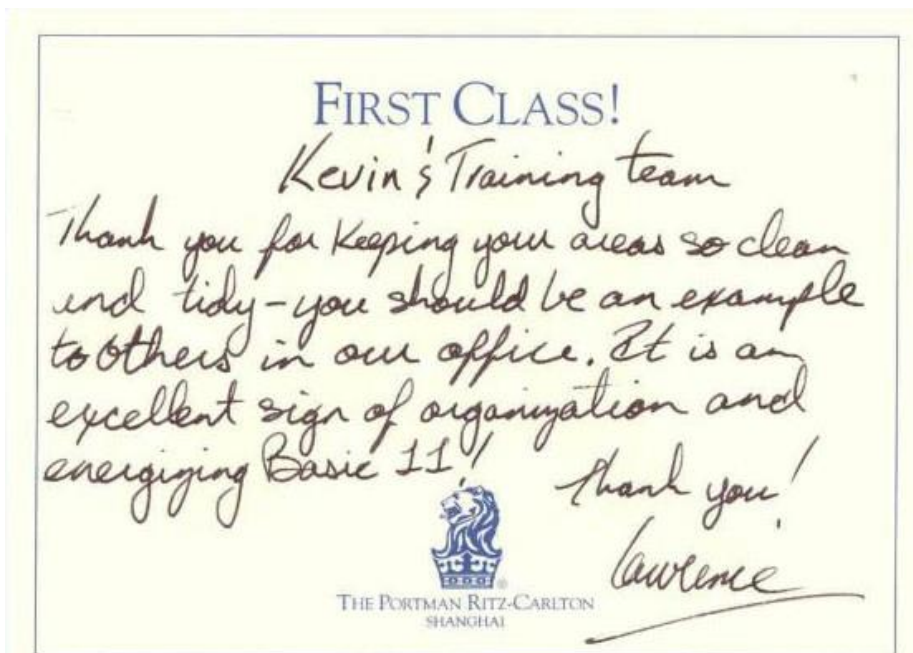 FIRST CLASS!
Kevin's Training team
Thank you for Keeping your areas so clean
and tidy - you should be an example
to others in our office. It is an
excellent sign of organization and
energizing Basic 11!
Thank you!
Lawrence
THE PORTMAN RITZ-CARLTON
SHANGHAI